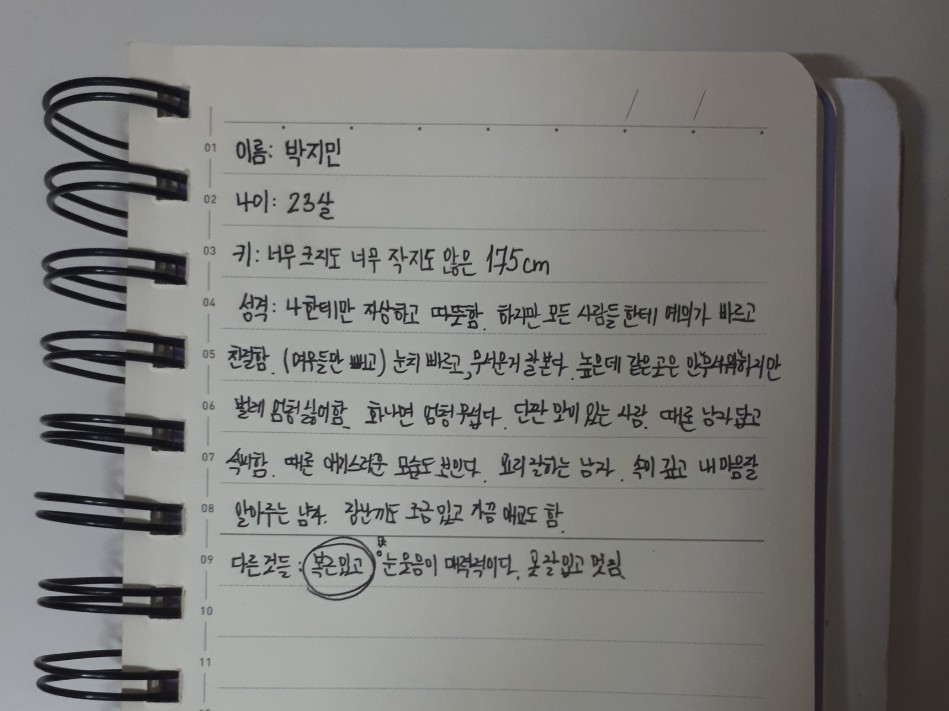 / /
01 이름: 박지민
02 나이: 23살
03 키: 너무 크지도 너무 작지도 않은 175cm
04 성격: 나한테만 자상하고 따뜻함. 하지만 모든 사람들한테 예의가 바르고
05 친절함. (여우들만 빼고) 눈치 빠르고, 무서운거 잘 본다. 높은데 같은곳은 안무서워하지만
06 벌레 엄청 싫어함. 화나면 엄청 무섭다. 단짠 맛이 있는 사람. 때론 남자답고
07 섹시함. 때론 아이스러운 모습도 보인다. 요리 잘하는 남자. 속이 깊고 내 마음 잘
08 알아주는 남자. 장난끼도 조금 있고 가끔 애교도 함.
09 다른것들: 복근있고 눈웃음이 매력적이다. 옷 잘 입고 멋짐
10
11